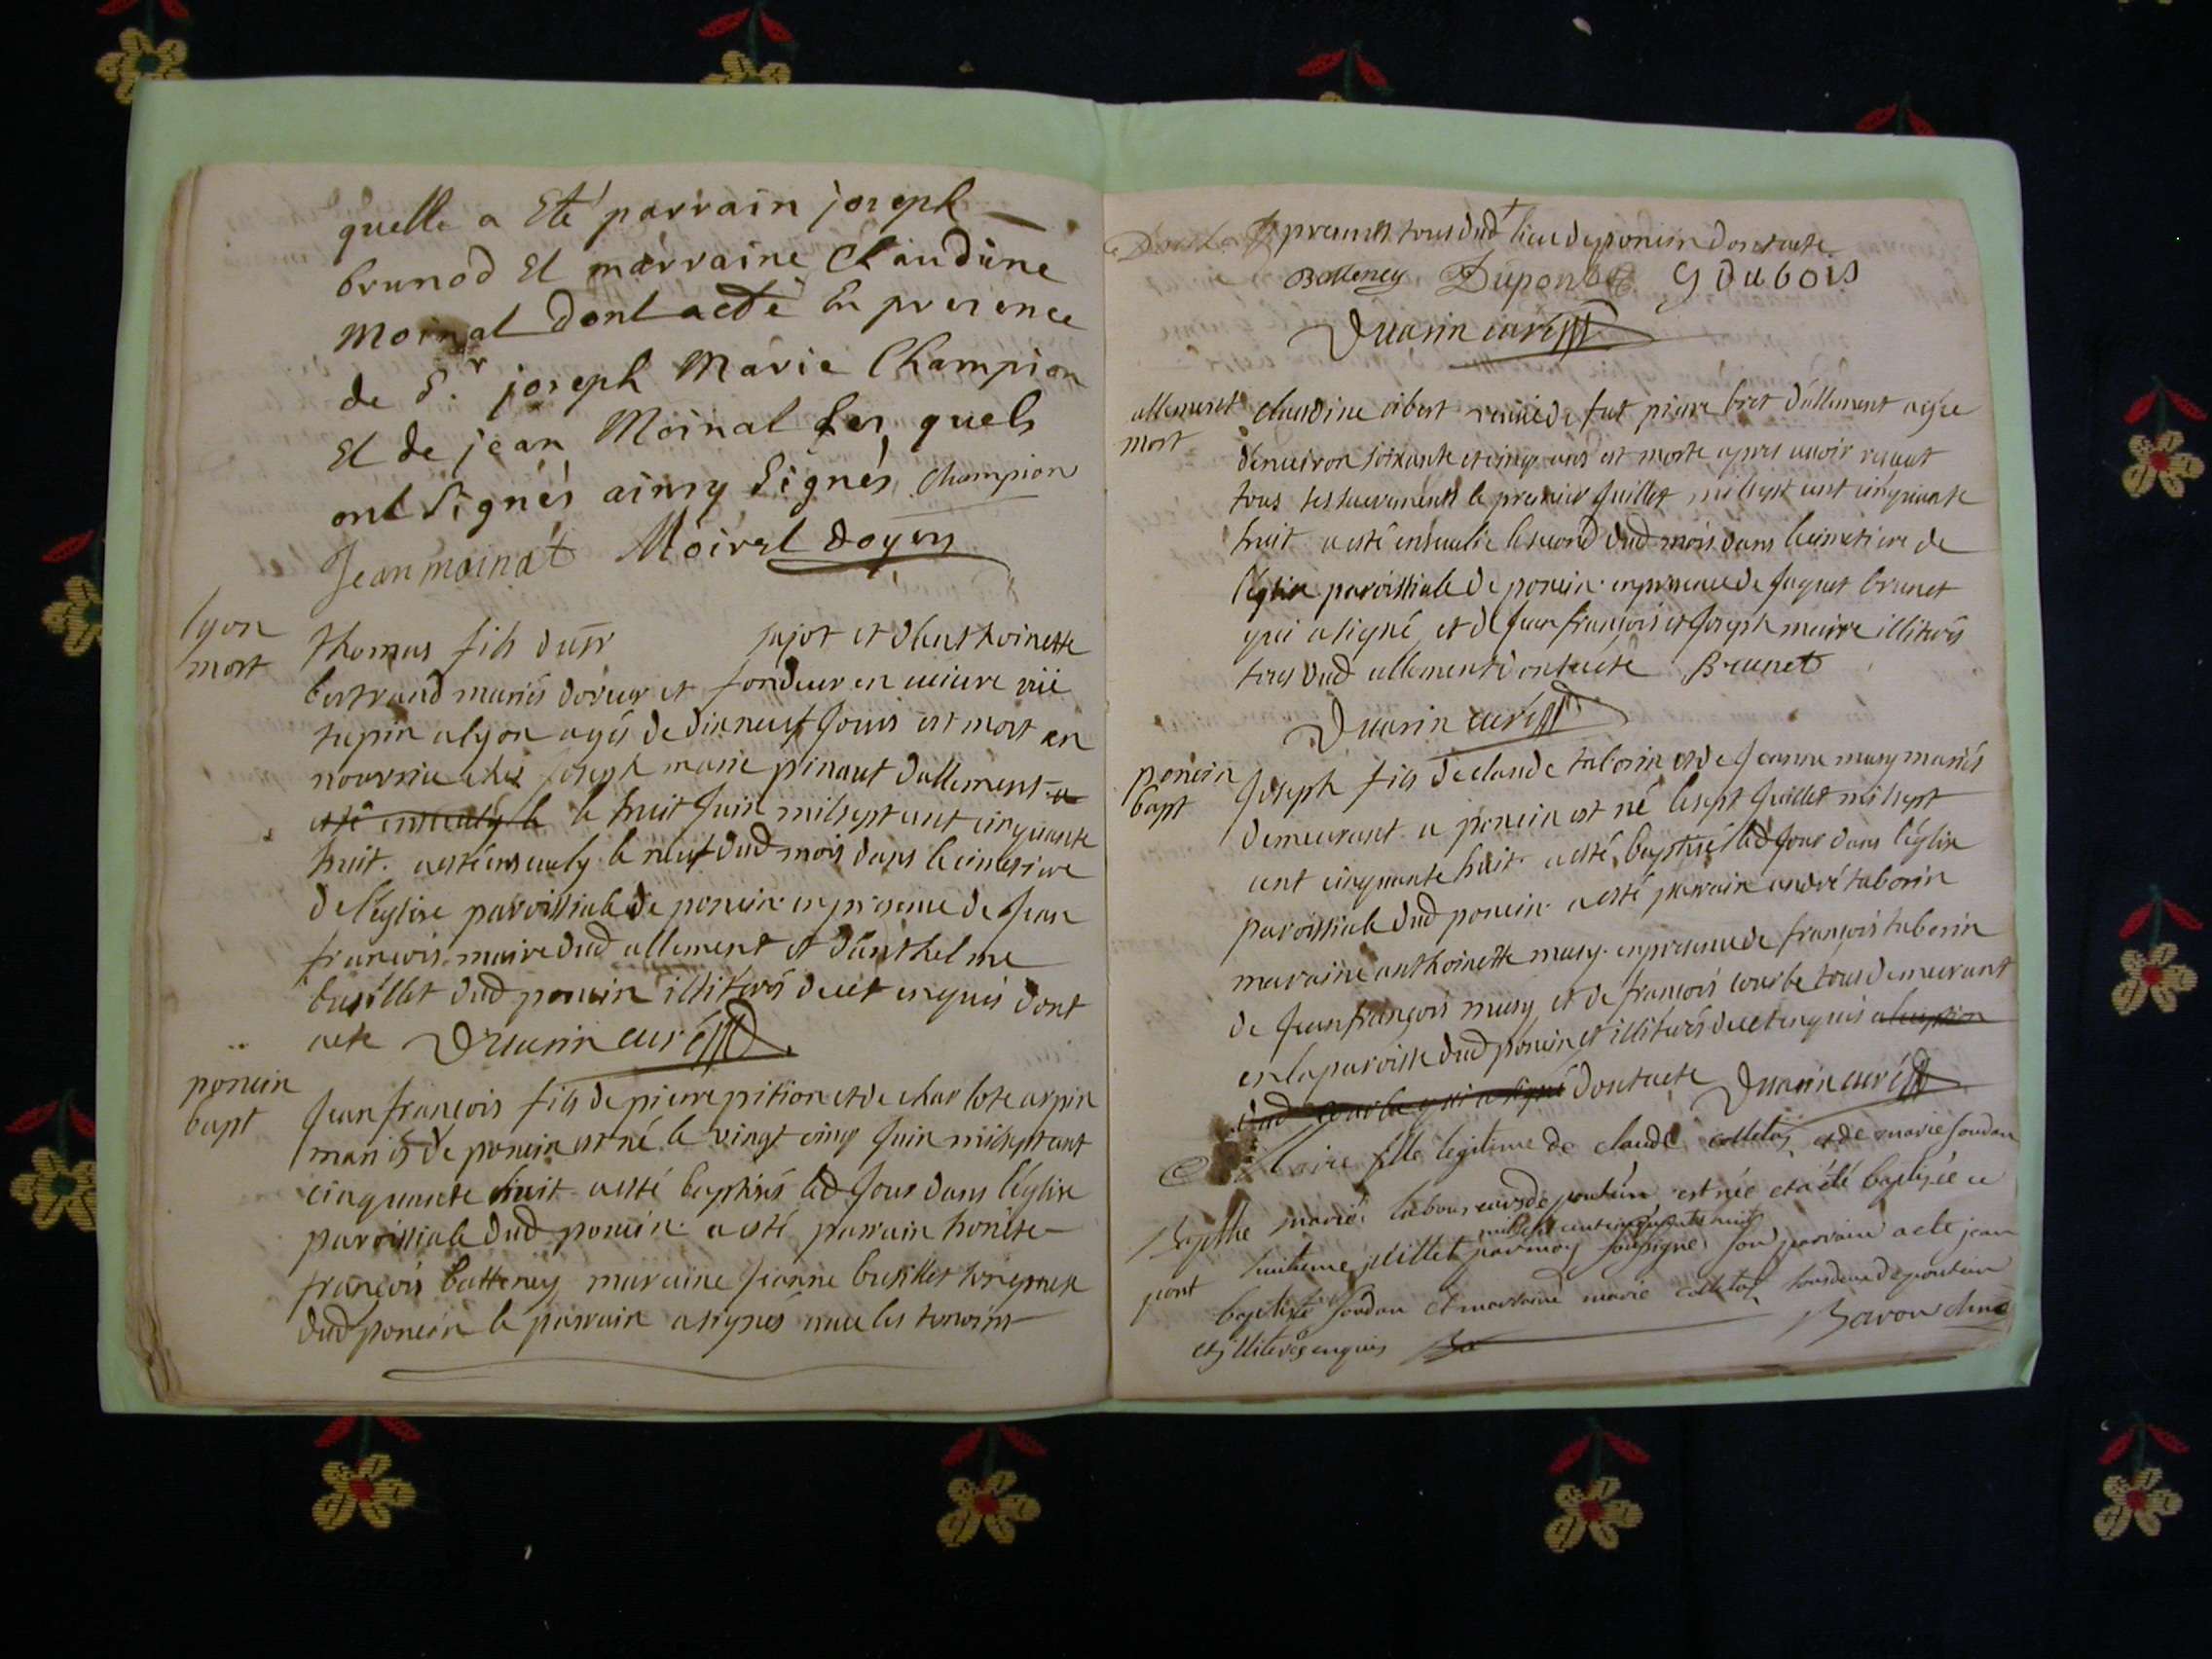 quelle a Eté parrain joseph
brunod Et marraine Claudine
Moinal dont acte En presence
de S.r joseph Marie Champion
Et de jean Moinal Les quels
ont Signés ainsy Signés Champion
Jean moinat Moirel doyen
lyon
mort
thomas fils du sr sujot et danthoinette
bertrand mariés doreur et fondeur en cuivre rüe
tupin a lyon agés de dixneuf Jours est mort en
nourrice chez Joseph marie pinaut dallement a
esté enseuely le le huit Juin milsept cent cinquante
huit. a esté enseuely le neuf dud mois dans le cimetiere
de l'église paroissiale de poncin en presence de Jean
francois maire dud allement et d'anthelme
busillet dud poncin illiterés de ce enquis dont
acte Duarin curé
poncin
bapt
Jean francois fils de pierre pition et de charlote arpin
mariés de poncin est né le vingt cinq Juin milsept cent
cinquante huit a esté baptisés led Jour dans l'église
paroissiale dud poncin a esté parrain honête
francois batteney maraine Jeanne busillet
dud poncin le parrain a signés avec les temoins
presents tous dud lieu de poncin dont acte
Batteney Dupont G dubois
Duarin curé
allement
mort
claudine vibert veuve de fut pierre bret d'allement agée
denuiron soixante et cinq ans est morte apres auoir receut
tous ses sacrements le premier Juillet mil sept cent cinquante
huit a esté enseuelie le second dud mois dans le cimetiere de
l'église paroissiale de poncin en presence de Jaques brunet
qui a signé et de Jean françois et Joseph maire illiterés
tous dud allement dont acte Brunet
Duarin curé
poncin
bapt
Joseph fils de claude taborin et de Jeanne musy mariés
demeurant a poncin est né le sept Juillet mil sept
cent cinquante huit a esté baptisé led Jour dans l'église
paroissiale dud poncin a esté parrain andré taborin
maraine anthoinette musy en presence de françois taborin
de Jean françois musy et de françois courbe tous demeurant
en la paroisse dud poncin et illiterés de ce enquis a lexeption
dud courbe qui a signé dont acte Duarin curé
Claire fille legitime de claude colletaz et de marie Joudan
mariés laboureurs de poncin est née et a été baptisée ce
mil sept cent cinquante huit
huitieme juillet par moy soussigné son parrain a eté jean
pont
baptiste Joudan et marraine marie colletaz tous deux de poncin
et illiterés enquis Baron